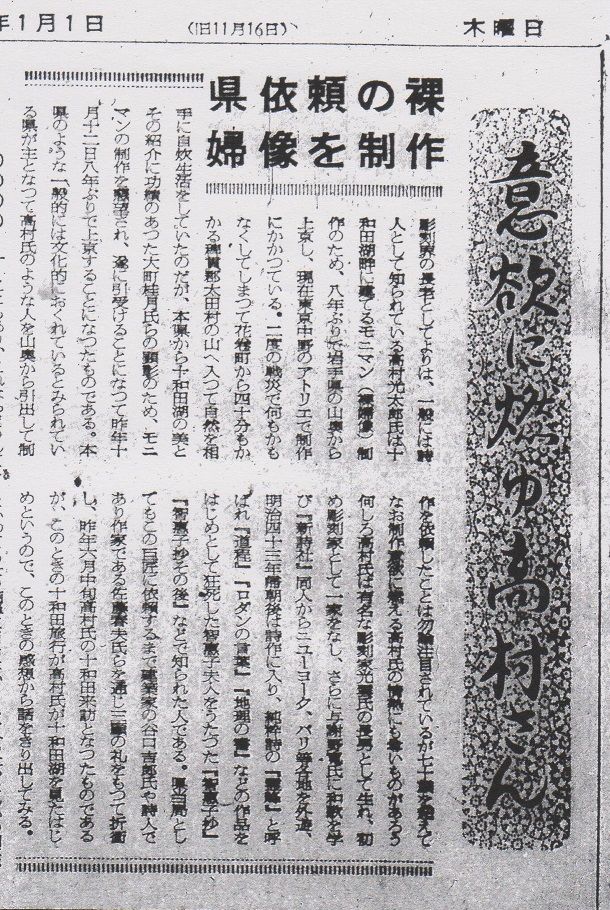 年1月1日
(旧11月16日)
木曜日
意欲に燃ゆ高村さん
県依頼の裸
婦像を制作
彫刻界の長老としてよりは、一般には詩
人として知られている高村光太郎氏は十
和田湖畔に建てるモニマン(裸婦像)制
作のため、八年ぶりで岩手県の山奥から
上京し、現在東京中野のアトリエで制作
にかかつている。二度の戦災で何もかも
なくしてしまつて花巻町から四十分もか
かる稗貫郡太田村の山へ入つて自然を相
手に自炊生活をしていたのだが、本県から十和田湖の美と
その紹介に功績のあつた大町桂月氏らの顕彰のため、モニ
マンの制作を懇望され、遂に引受けることになつて昨年十
月十二日八年ぶりで上京することになつたものである。本
県のような一般的には文化的におくれているとみられてい
る県が主となつて高村氏のような人を山奥から引出して制
作を依頼したことは勿論注目されているが七十歳を越えて
なお制作意欲に燃える高村氏の情熱にも尊いものがあろう
何しろ高村氏は有名な彫刻家光雲氏の長男として生れ、初
め彫刻家として一家をなし、さらに与謝野寛氏に和歌を学
び『新詩社』同人からニューヨーク、パリ等各地を外遊、
明治四十三年帰朝後は詩作に入り、純粋詩の
と呼
ばれ『道程』『ロダンの言葉』『地理の書』などの作品を
はじめとして狂死した智恵子夫人をうたつた『智恵子抄』
『智恵子抄その後』などで知られた人である。県当局とし
てもこの巨匠に依頼するまで建築家の谷口吉郎氏や詩人で
あり作家である佐藤春夫氏らを通じ三顧の礼をもつて折衝
し、昨年六月中旬高村氏の十和田来訪となつたものである
が、このときの十和田旅行が高村氏が十和田湖を見たはじ
めというので、このときの感想から話をきり出してみる。